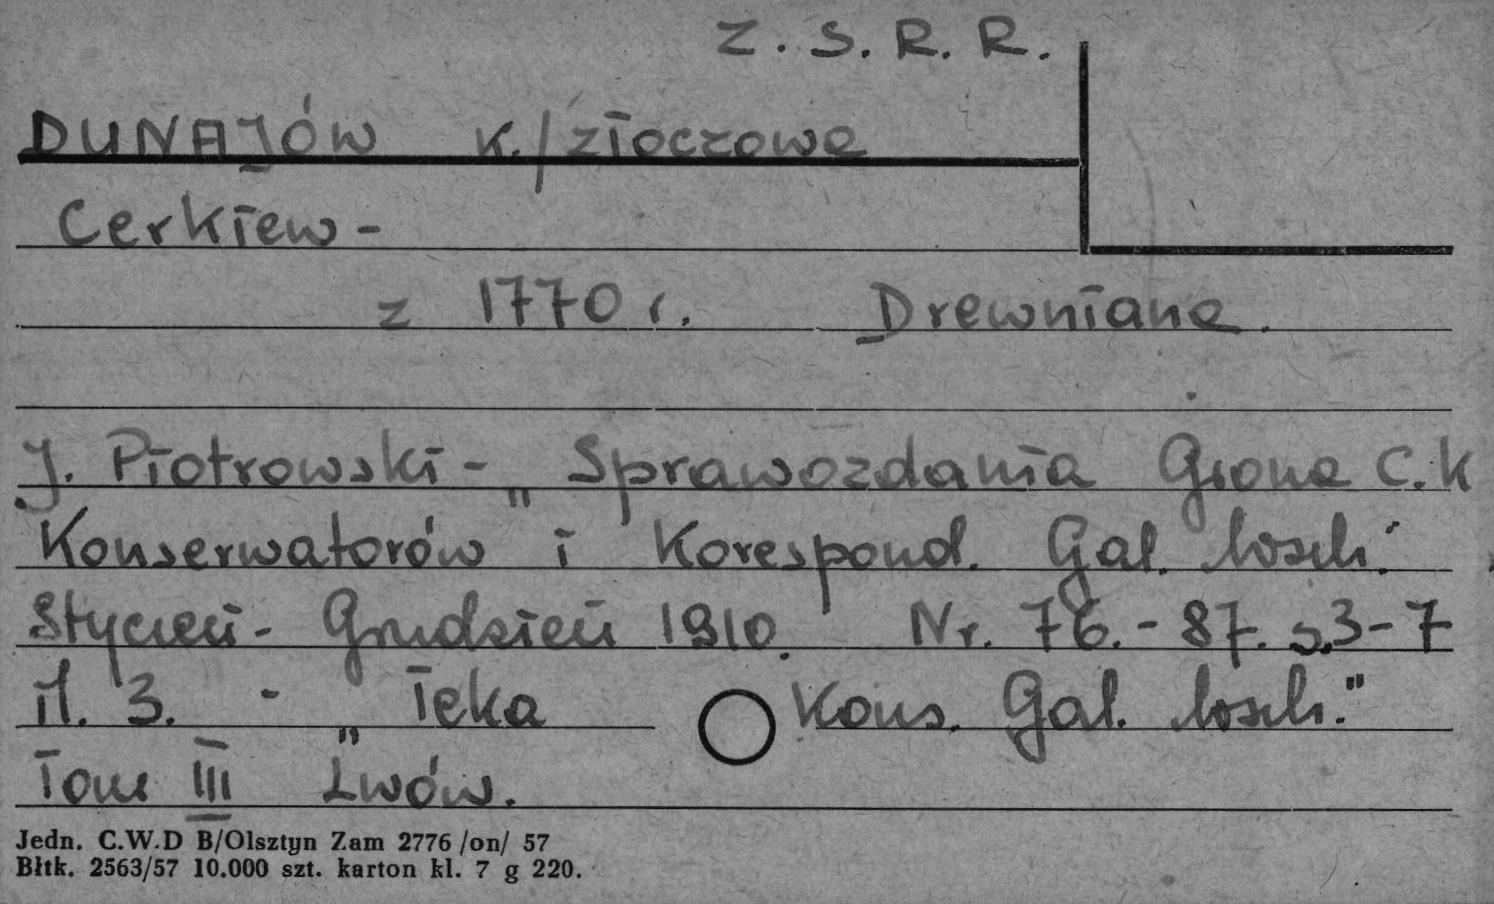 Z. S. R. R.
DUNAJÓW k./Złoczowa
Cerkiew -
z 1770 r. Drewniana.
J. Piotrowski - „Sprawozdania Grona C.K
Konserwatorów i Korespond. Gal. wsch."
Styczeń - Grudzień 1910. Nr. 76. - 87. s.3-7
il. 3. - „Teka Kons. Gal. wsch."
Tom III Lwów.
Jedn. C.W.D B/Olsztyn Zam 2776 /on/ 57
Błtk. 2563/57 10.000 szt. karton kl. 7 g 220.